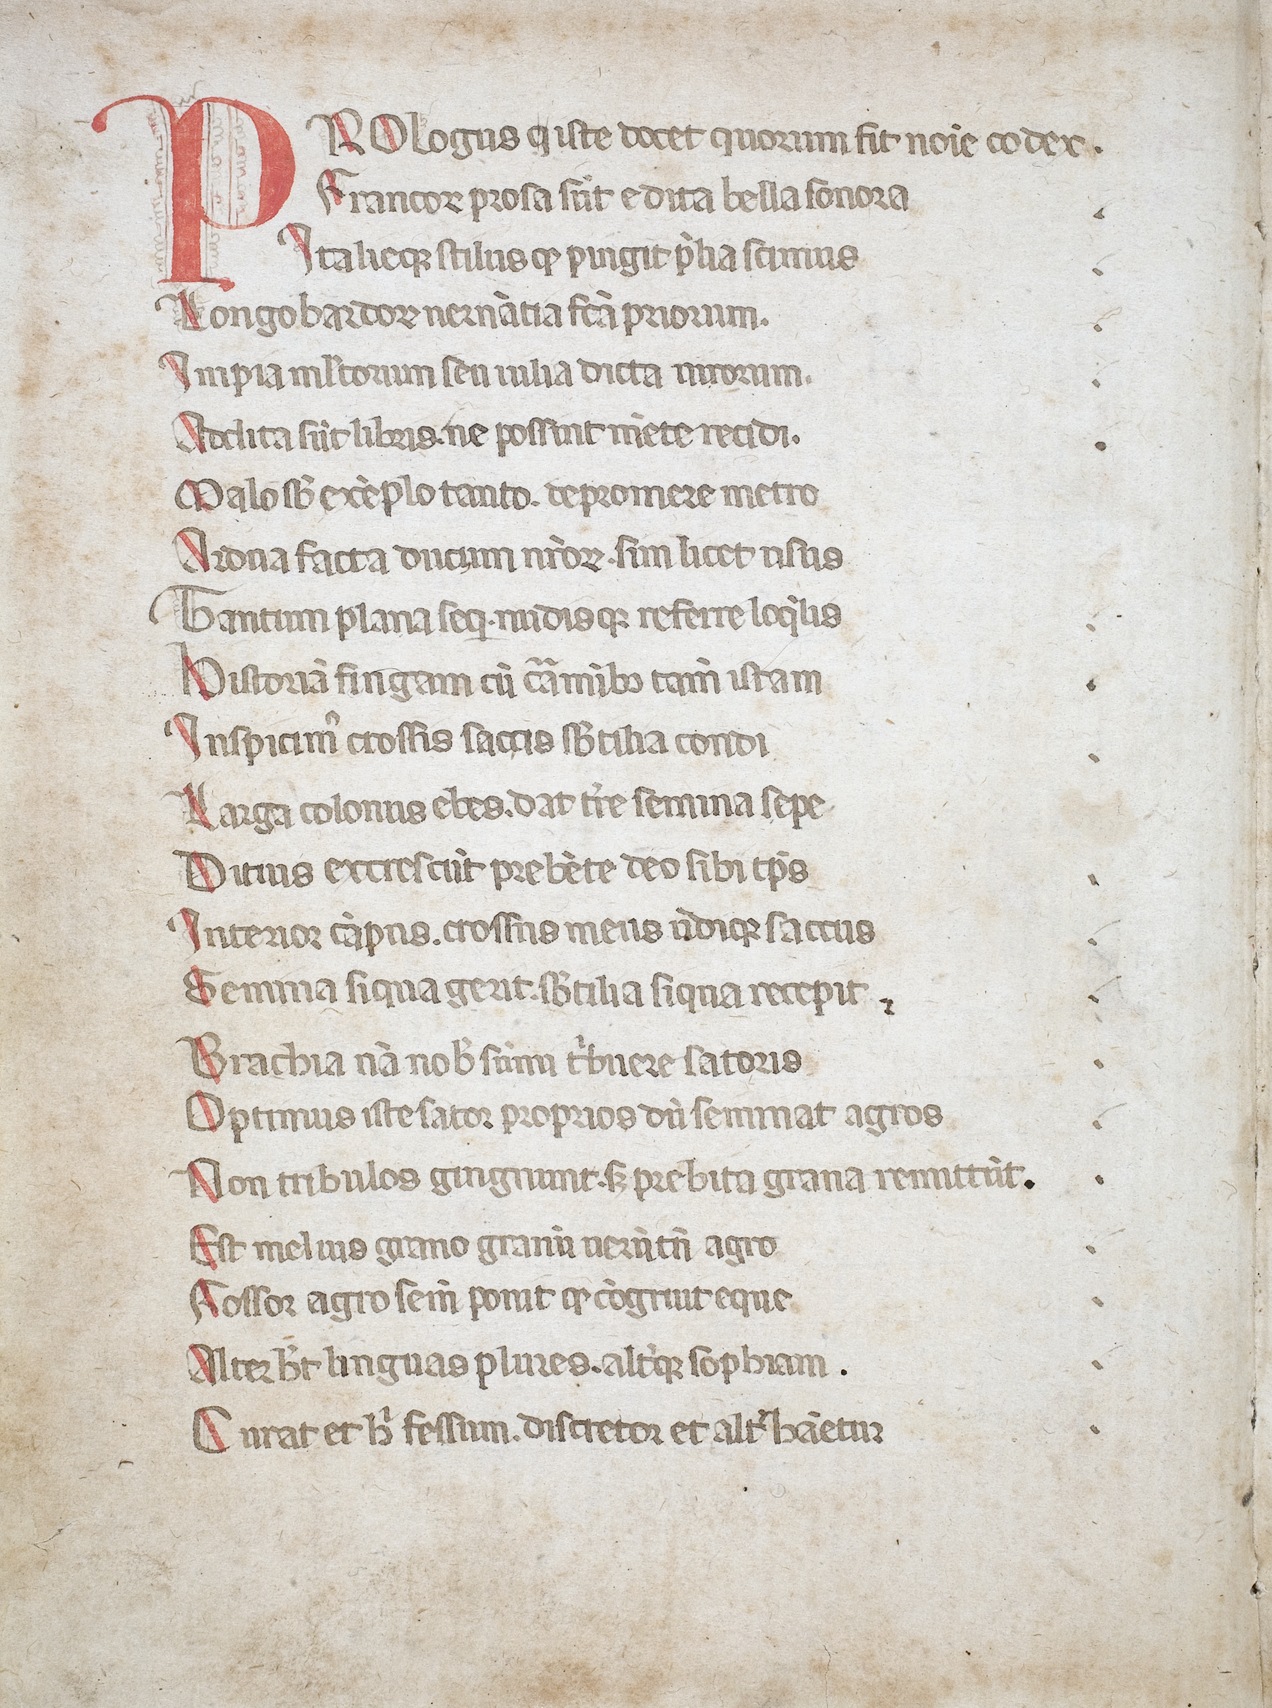 PROlogus q iste docet quorum fit noīe codex.
Francoꝝ prosa sūt edita bella sonora
Italieqꝫ stilus q̄ pingit p̄lia scimus
Longobardoꝝ uernātia fc̄a priorum.
Impia mīstorum seu iulia dicta uirorum.
Addita sūt libris. ne possint mēte recidi.
Malo sb̄ exēplo tanto. depromere metro
Ardua facta ducum nr̄oꝝ. sim licet usus
Tantum plana sequi. nudisqꝫ referre loq̄lis
Historiā fingam cū cāminibꝫ tam̄ istam
Inspicim᷒ crossis saccis sb̄tilia condi
Larga colonus ebes. dat tr̄re semina sepe
Ditius excrescūt prebēte deo sibi tp̄s
Interior cāpus. crossus meus ūdiqꝫ saccus
Semina siqua gerit. sb̄tilia siqua recepit
Brachia nā nob̄ sūmi t̄buere satoris
Optimus iste sator proprios dū seminat agros
Non tribulos gingnunt. sꝫ prebita grana remittūt.
Est melius grano granū uerūtn̄ agro
Fossor agro sem̄ ponit q̄ cōgruit eque
Alter h̄t linguas plures. altq̄ꝫ sophiam.
Curat et h̄ fessum. discretor et alt̄ hāetur